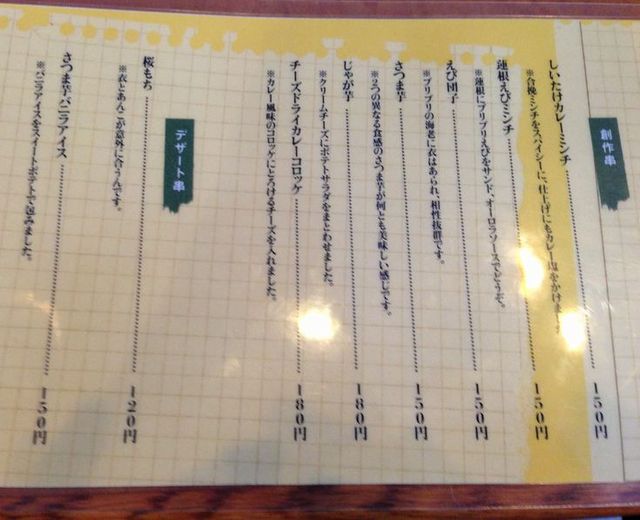 創作串
しいたけカレーミンチ 150円
※合挽ミンチをスパイシーに、仕上げにもカレー塩をかけます
蓮根えびミンチ 150円
※蓮根にプリプリえびをサンド、オーロラソースでどうぞ。
えび団子 150円
※プリプリの海老に衣はあられ、相性抜群です。
さつま芋 150円
※2つの異なる食感のさつま芋が何とも美味しい感じです。
じゃが芋 180円
※クリームチーズにポテトサラダをまとわせました。
チーズドライカレーコロッケ 180円
※カレー風味のコロッケにとろけるチーズを入れました。
デザート串
桜もち 120円
※衣とあんこが意外に合うんです。
さつま芋バニラアイス 150円
※バニラアイスをスイートポテトで包みました。